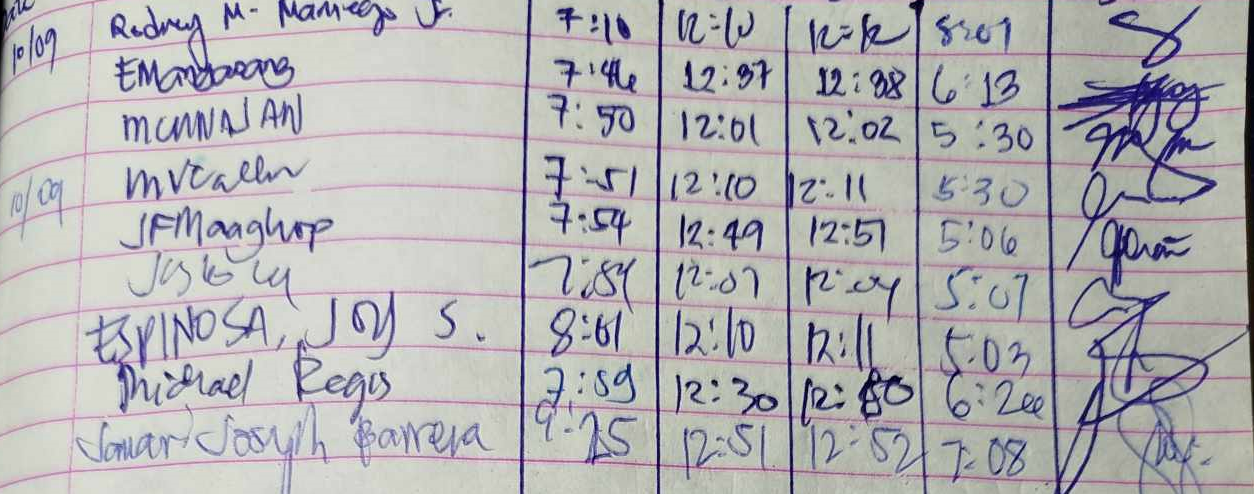 10/09 Rodney M. Manriego Jr. 7:10 12:10 12:12 8:01
EMandarang 7:46 12:37 12:38 6:13
MCMNAJAN 7:50 12:01 12:02 5:30
10/09 7:51 12:10 12:11 5:30
JFMaaghop 7:54 12:49 12:51 5:06
12:07 5:07
ESPINOSA, JOY S. 8:01 12:10 12:11 5:03
Michael Regis 7:59 12:30 6:20
Jomari Joseph Barrera 9:25 12:51 12:52 7:08